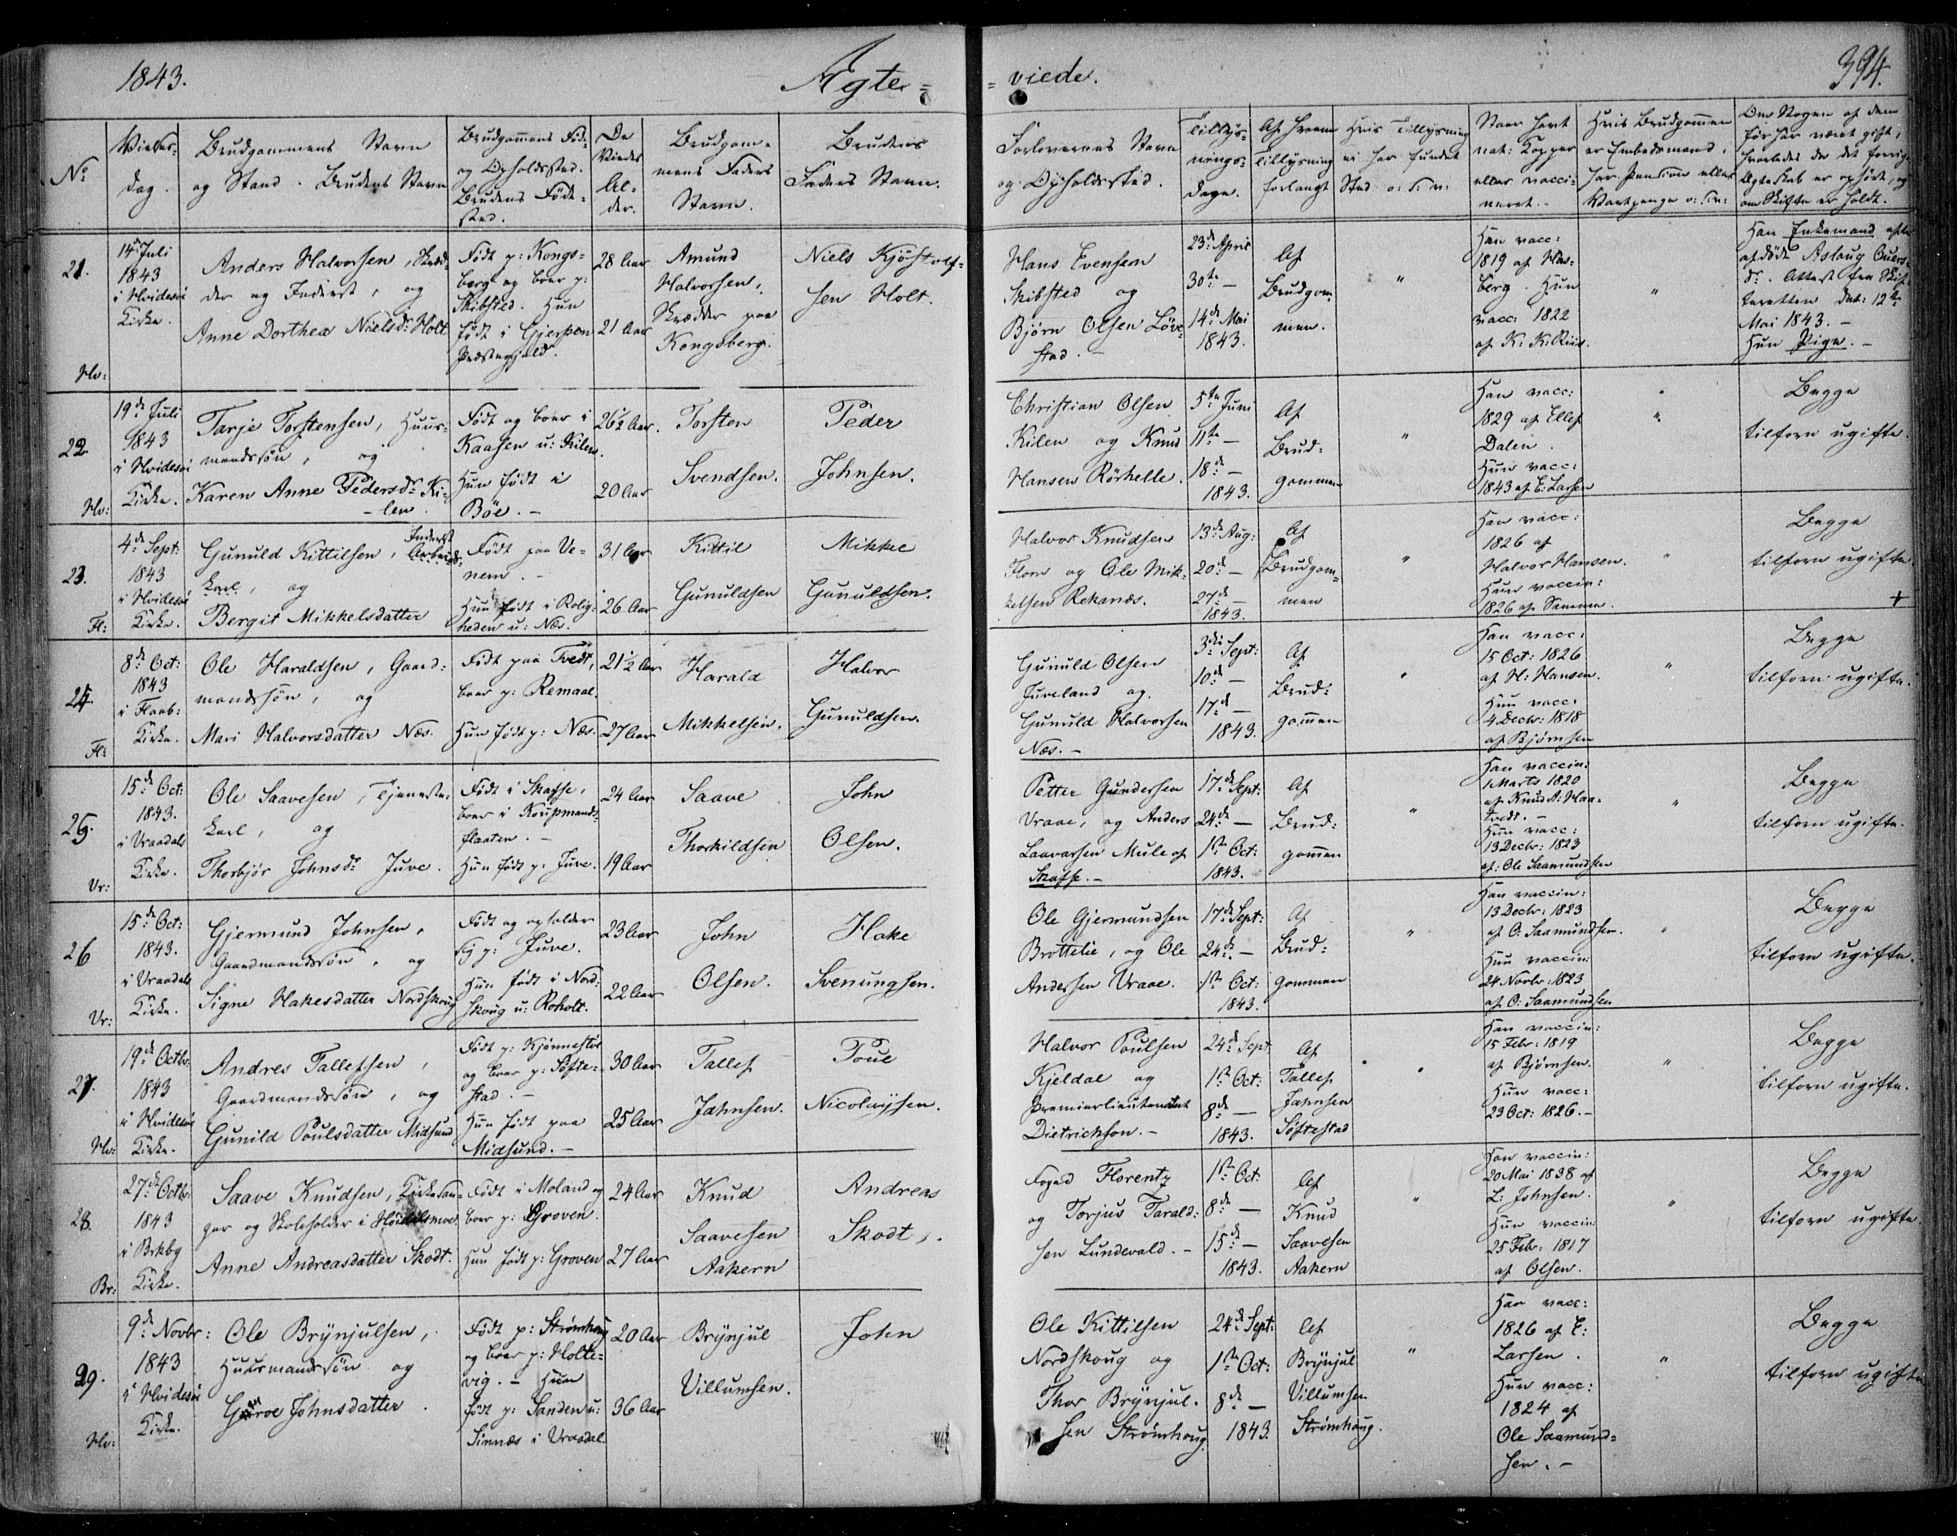 1843.
Ægte=
= viede.
394.
No
Vielses-
dag.
Brudgommens Navn
og Stand. Brudens Navn
Brudgommens Føde-
og Opholdssted.
Brudens Føde-
sted.
De
Viedes
Al-
der.
Brudgom-
mens Faders
Navn.
Brudens
Faders Navn.
Forlovernes Navn
og Opholdssted.
Tillys-
nings-
dage.
Af hvem
Tillysning
forlangt
Hvis Tillysning
ei har fundet
Sted o: s: v:
Naar havt
nat: Kopper
eller vacci-
neret.
Hvis Brudgommen
er Embedsmand,
har Pension eller
Vartpenge o: s: v:
Om Nogen af dem
før har været gift,
hvorledes da det forrige
Ægteskab er ophørt, og
om Skifte er holdt.
21.
Hv:
14de Juli
1843
i Hvidesøi
Kirke.
Anders Halvorsen, Skræd-
der og Inderst, og
Anne Dorthea Nielsdr Holt.
Født p: Kongs-
berg og boer p:
Skibsted. Hun
født i Gjerpen
Præstegjeld.
28 Aar
21 Aar
Amund
Halvorsen,
Skrædder paa
Kongsberg.
Niels Kjøstolf-
sen Holt.
Hans Evensen
Skibsted og
Bjørn Olsen Løve
stad. -
23de April
30te -
14de Mai
1843.
Af
Brudgom
men.
"
Han vacc:
1819 af
berg. Hun
vacc: 1822
af K:
"
Han Enkemand efter
afdøde Aslaug
Dr. Attest fra Skif-
teretten dat: 12te
Mai 1843. -
Hun Pige. -
22
Hv:
19de Juli
1843
i Hvidesøi
Kirke.
Tarje Torstensen, Huus-
mandssøn, og
Karen Anne Pedersdr Ki-
len.
Født og boer i
Kaasen u: Kilen.
Hun født i
Bøe. -
26½ Aar.
20 Aar
Torsten
Svendsen.
Peder
Johnsen.
Christian Olsen
Kilen og Knud
Hansen Rørhelle.
5te Juni
11te -
18de -
1843.
Af
Brud-
gommen
"
Han vacc:
1829 af Ellef
Dalen.
Hun vacc:
1843 af E: Larsen
"
Begge
tilforn ugifte.
23.
Fl:
4de Sept:
1843
i Hvidesøi
Kirke.
Gunuld Kittilsen, Inderst
Arbeids-
karl, og
Bergit Mikkelsdatter
Født paa Ve-
nem. -
Hun født i Rolig-
heden u: Næs.
31 Aar
26 Aar
Kittil
Gunuldsen
Mikkel
Gunuldsen.
Halvor Knudsen
Flom og Ole Mik-
kelsen Rekanæs.
13de Aug:
20de -
27de -
1843.
Af
Brudgom-
men
"
Han vacc:
1826 af
Halvor Hansen.
Hun vaccin:
1826 af Samme.
"
Begge
tilforn ugifte
+
24.
Fl:
8de Oct:
1843
i Flaab:
Kirke.
Ole Haraldsen, Gaard-
mandssøn, og
Mari Halvorsdatter Næs.
Født paa Tvedt,
boer p: Remaal.
Hun født p: Næs.
21½ Aar
27 Aar
Harald
Mikkelsen.
Halvor
Gunuldsen.
Gunuld Olsen
Juveland og
Gunuld Halvorsen
Næs. -
3die Sept:
10de -
17de -
1843.
Af
Brud-
gommen
"
Han vacc:
15 Oct: 1826
af H: Hansen.
Hun vacc:
4 Decbr: 1818
af Bjørnsen
"
Begge
tilforn ugifte.
25.
Vr:
15de Oct:
1843.
i Vraadals
Kirke.
Ole Saavesen, Tjeneste-
karl, og
Thorbjør Johnsdr Juve.
Født i Skafse,
boer i Koupmands-
flaaten. -
Hun født p: Juve.
24 Aar
19 Aar
Saave
Thorkildsen
John
Olsen.
Petter Gundersen
Vraae, og Anders
Laavarsen Mule af
Skafse. -
17de Sept:
24de -
1ste Oct:
1843.
Af
Brud-
gommen
"
Han vaccin:
1 Marts 1820
af Knud A: Haa-
tvedt. -
Hun vacc:
13 Decbr: 1823
af: Ole Saamundsen
"
Begge
tilforn ugifte.
26
Vr:
15de Oct:
1843.
i Vraadals
Kirke.
Gjermund Johnsen,
Gaardmandssøn, og
Signe Hakesdatter Nordskoug
Født og opholder
sig p: Juve.
Hun født i Nord-
skoug u: Roholt.
23 Aar
22 Aar
John
Olsen.
Hake
Svenungsen.
Ole Gjermundsen
Brottelie, og Ole
Andersen Vraae.
17de Sept:
24de -
1ste Oct:
1843.
Af
Brud-
gommen
"
Han vaccin:
13 Decbr: 1823
af O: Saamundsen.
Hun vaccin:
24 Novbr: 1823
af O: Saamundsen
"
Begge
tilforn ugifte.
27.
Hv:
19de Octbr
1843
i Hvidesøi
Kirke.
Andres Tallefsen,
Gaardmandssøn, og
Gunild Poulsdatter Midsund
Født p: Kjønnestve
og boer p: Søfte-
stad. -
Hun født paa
Midsund. -
30 Aar
25 Aar
Tallef
Jahnsen.
Poul
Nicolaysen.
Halvor Poulsen
Kjeldal og
Premierlieutenant
Dietrichson. -
24de Sept
1ste Oct:
8de -
1843.
Af
Tallef
Jahnsen
Søftestad
"
Han vaccin:
15 Febr: 1819
af Bjørnsen.
Hun vacc:
23 Oct: 1826. -
"
Begge
tilforn ugifte.
28.
Br:
27de Octbr
1843
i Brkbg
Kirke.
Saave Knudsen, Kirkesan-
ger og Skoleholder i
Anne Andreasdatter Skodt.
Født i Moland og
boer p: Groven.
Hun født p: Groven
24 Aar
27 Aar
Knud
Saavesen
Aakern
Andreas
Skodt.
Foged Florentz
og Torjus Tarald-
sen Lundevald. -
1ste Oct:
8de -
15de -
1843.
Af
Knud
Saavesen
Aakern
"
Han vaccin:
20 Mai 1838 af
L: Johnsen.
Hun vaccin
25 Feb: 1817
af Olsen.
"
Begge
tilforn ugifte.
29.
Hv:
9de Novbr:
1843
i Hvidesøi
Kirke.
Ole Brynjulsen,
Huusmandssøn og
Guroe Johnsdatter.
Født p: Strømhoug
og boer p: Holte-
vig. - Hun
født p: Sanden u:
Sinnæs i Vraadal.
20 Aar
36 Aar
Brynjul
Villumsen.
John
Ole Kittilsen
Nordskoug og
Thor Brynjul-
sen Strømhoug.
24de Sept:
1ste Oct:
8de -
1843.
Af
Brynjul
Villumsen
Strømhoug.
"
Han vacc:
1826 af E:
Larsen.
Hun vacc:
1824 af
Ole Saamund-
sen. -
"
Begge
tilforn ugifte